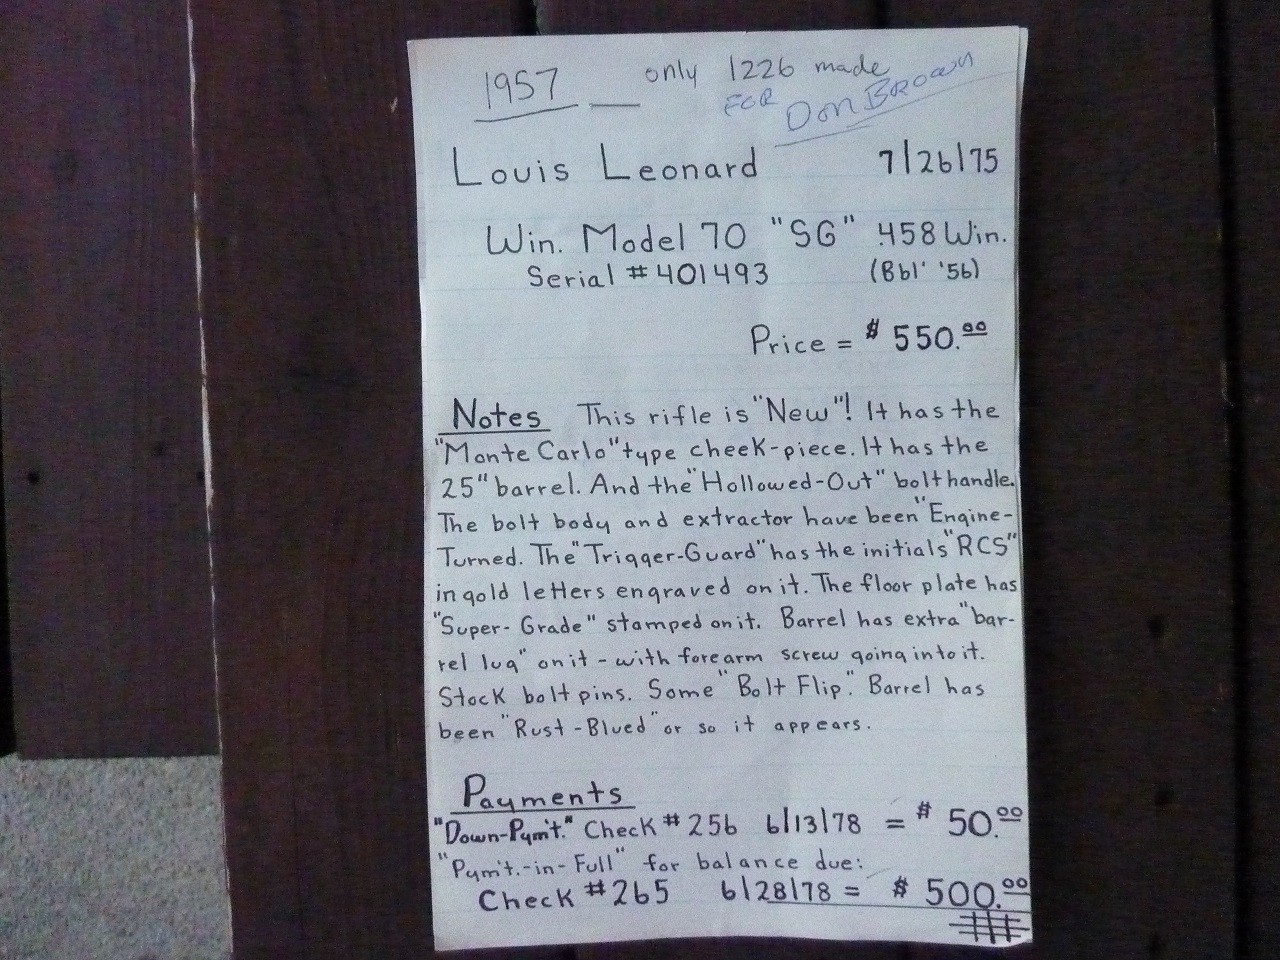 1957 __ only 1226 made
FOR Don Brown
Louis Leonard 7/26/75
Win. Model 70 "SG" .458 Win.
Serial #401493 (Bbl' '56)
Price = $550.00
Notes This rifle is "New"! It has the
"Monte Carlo" type cheek-piece. It has the
25" barrel. And the "Hollowed-Out" bolt handle.
The bolt body and extractor have been "Engine-
Turned. The "Trigger-Guard" has the initials "RCS"
in gold letters engraved on it. The floor plate has
"Super-Grade" stamped on it. Barrel has extra "bar-
rel lug" on it - with forearm screw going into it.
Stock bolt pins. Some "Bolt Flip". Barrel has
been "Rust-Blued" or so it appears.
Payments
"Down-Pym't." Check #256 6/13/78 = $50.00
"Pym't.-in-Full" for balance due:
Check #265 6/28/78 = $500.00